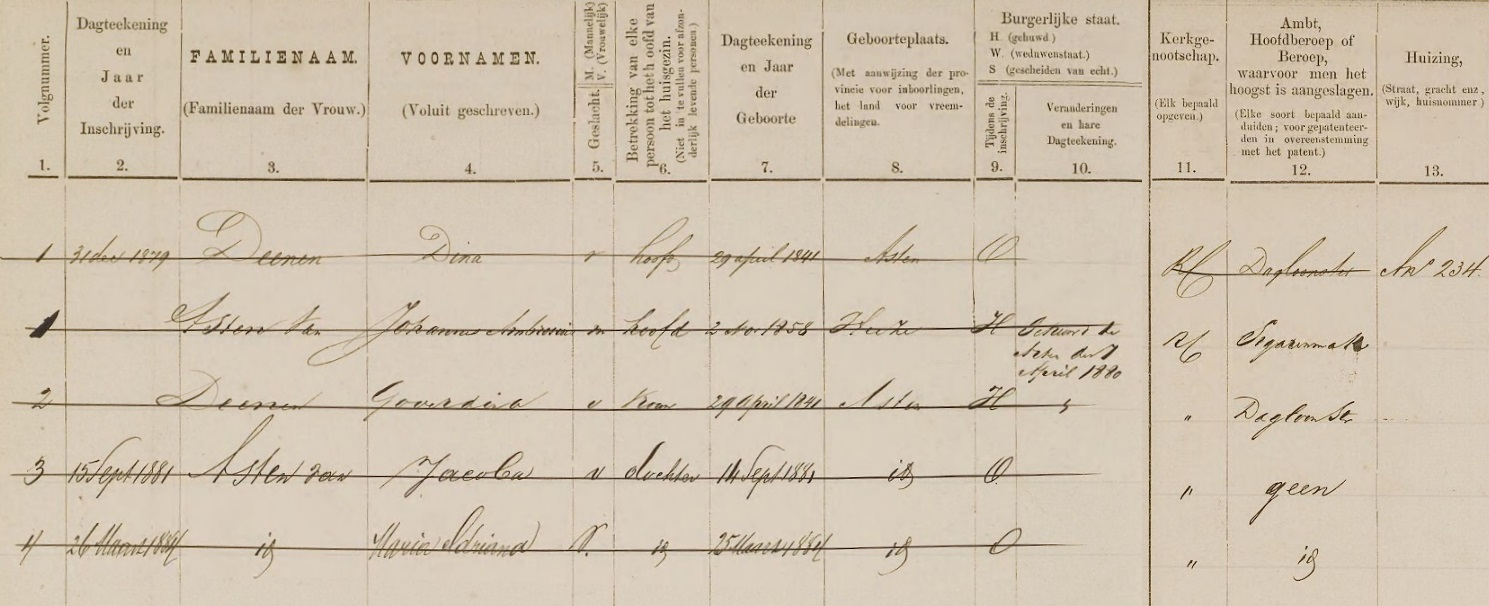 Volgnummer.
1.
Dagteekening
en
Jaar
der
Inschrijving.
2.
FAMILIENAAM.
(Familienaam der Vrouw.)
3.
VOORNAMEN.
(Voluit geschreven.)
4.
Geslacht. M. (Mannelijk)
V. (Vrouwelijk)
5.
Betrekking van elke
persoon tot het hoofd van
het huisgezin.
(Niet in te vullen voor afzon-
derlijk levende personen.)
6.
Dagteekening
en Jaar
der
Geboorte
7.
Geboorteplaats.
(Met aanwijzing der pro-
vincie voor inboorlingen,
het land voor vreem-
delingen.
8.
Burgerlijke staat.
H. (gehuwd.)
W. (weduwenstaat.)
S (gescheiden van echt.)
Tijdens de
inschrijving.
9.
Veranderingen
en hare
Dagteekening.
10.
Kerkge-
nootschap.
(Elk bepaald
opgeven.)
11.
Ambt,
Hoofdberoep of
Beroep,
waarvoor men het
hoogst is aangeslagen.
(Elke soort bepaald aan-
duiden; voor gepatenteer-
den in overeenstemming
met het patent.)
12.
Huizing,
(Straat, gracht enz.,
wijk, huisnommer)
13.
1 31 dec 1879 Deenen Dina v hoofd 29 april 1841 Asten O RC Dagloonster An 234
1 Asten van Johannes Ambrosius m hoofd 2 Nov 1858 Heeze H
Acte der 7
April 1880
RC Segarenmaker
2 Deenen Goverdina v 29 April 1841 Asten H " " Dagloonster
3 15 Sept 1881 Asten van Jacoba v dochter 14 Sept 1881 id O " geen
4 26 Maart 1884 id Maria Adriana V. id 25 Maart 1884 id O " id